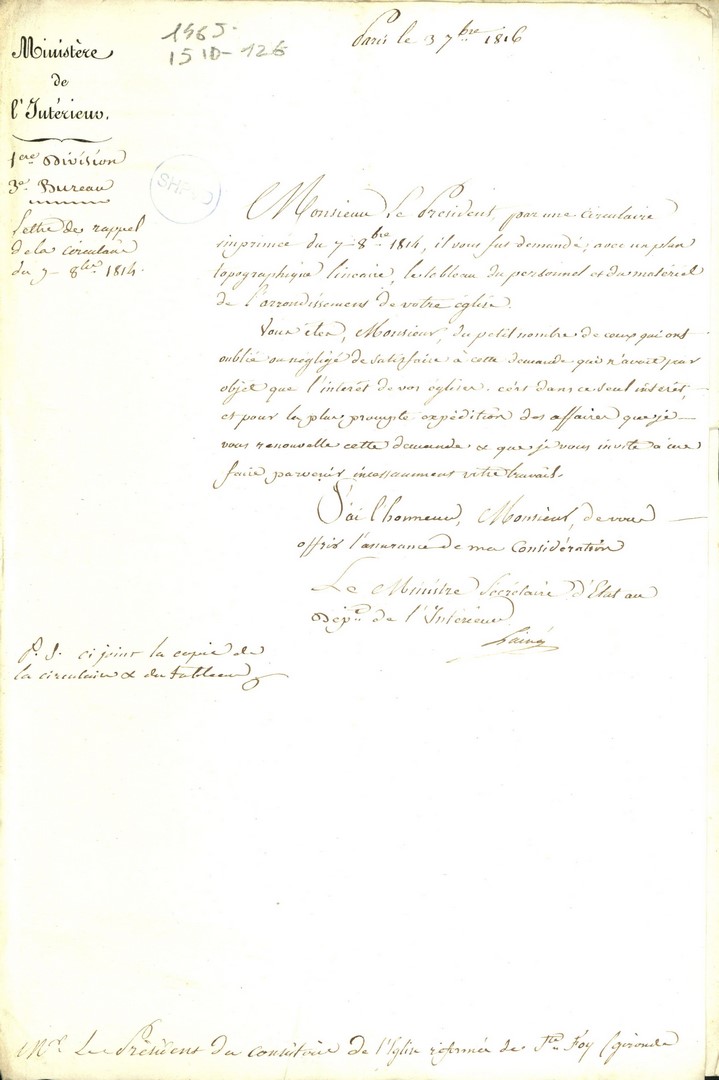 1465.
15 1D- 126
Paris le 3 7bre 1816
Ministère
de
l'Intérieur.
1ere Division
3e. Bureau
Lettre de rappel
de la circulaire
du 7- 8bre 1814.
SHP
Monsieur Le Président, par une circulaire
imprimée du 7- 8bre 1814, il vous fut demandé, avec un plan
topographique linéaire, le tableau du personnel et du matériel
de l'arrondissement de votre église.
Vous êtes, Monsieur, du petit nombre de ceux qui ont
oublié ou négligé de satisfaire à cette demande qui n'avait par
objet que l'intérêt de vos églises. c'est dans ce seul intérêt,
et pour la plus prompte expédition des affaires que je
vous renouvelle cette demande & que je vous invite à me
faire parvenir incessamment votre travail.
J'ai l'honneur, Monsieur, de vous
offrir l'assurance de ma Considération
Le Ministre Secrétaire d'Etat au
Dépt. de l'Intérieur
Lainé
P. S. ci joint la copie de
la circulaire & du tableau
Mr. Le Président du consistoire de l'Eglise réformée de Ste. Foy (gironde